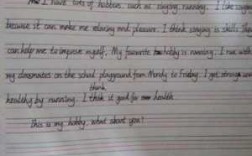 I have lots of hobbies, such as singing, running. I like singing
because it can make me relaxing and pleasure. I think singing is skill. They
can help me to improve myself. My favourite hobby is running. I run with
my classmates on the school playground from Monday to Friday. I get strong and
think
healthy by running. I think it good for health
This is my hobby. what about you?